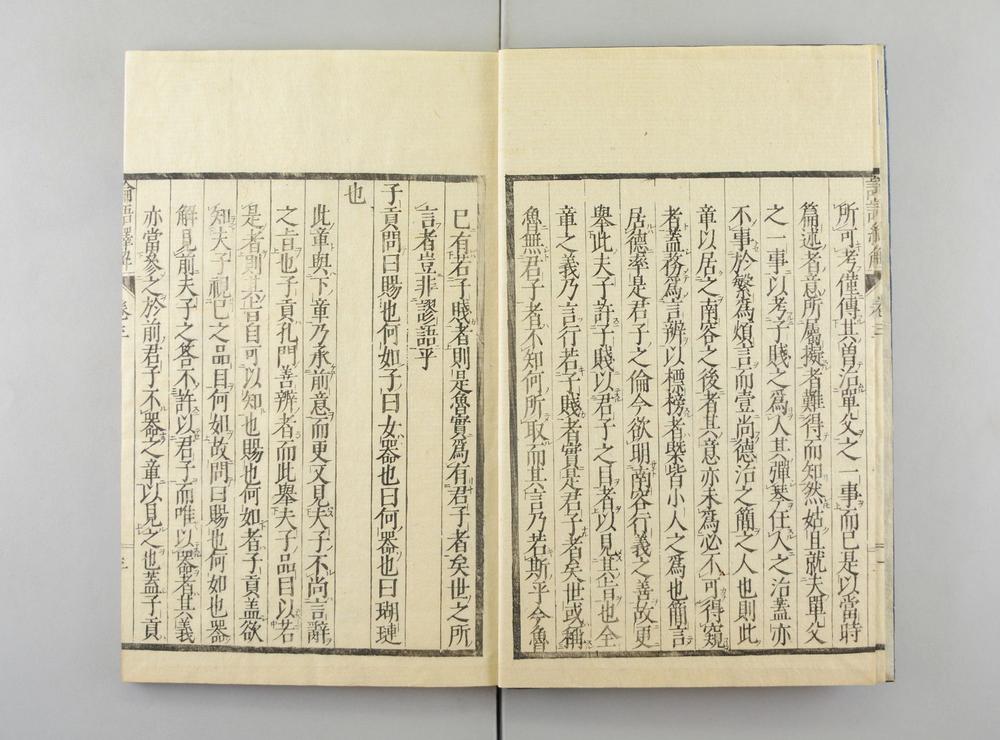 所可考僅傳其曽治單父之一事而已是以當時
篇述者意所屬擬者難得而知然姑且就夫單父
之一事以考子賤之爲人其彈琴任人之治蓋亦
不事於繁爲煩言而壹尚德治之簡之人也則此
章以居之南容之後者其意亦未爲必不可得窺
者蓋務爲言辨以標榜者槩皆小人之爲也簡言
居德率是君子之倫今欲明南容行義之善故更
舉此夫子許子賤以君子之目者以見其旨也全
章之義乃言行若子賤者實是君子者矣世或稱
魯無君子者不知何所取而其言乃若斯乎今魯
已有若子賤者則是魯實爲有君子者矣世之所
言者豈非謬語乎
子貢問曰賜也何如子曰女器也曰何器也曰瑚璉
也
此章與下章乃承前意而更又見夫子不尚言辭
之旨也子貢孔門善辨者而此舉夫子品目以若
是者則其旨自可以知也賜也何如者子貢蓋欲
知夫子視己之品目何如故問曰賜也何如也器
解見前夫子之答不許以君子而唯以器者其義
亦當參之於前君子不器之章以見之也蓋子貢
論語繹解 卷三 三